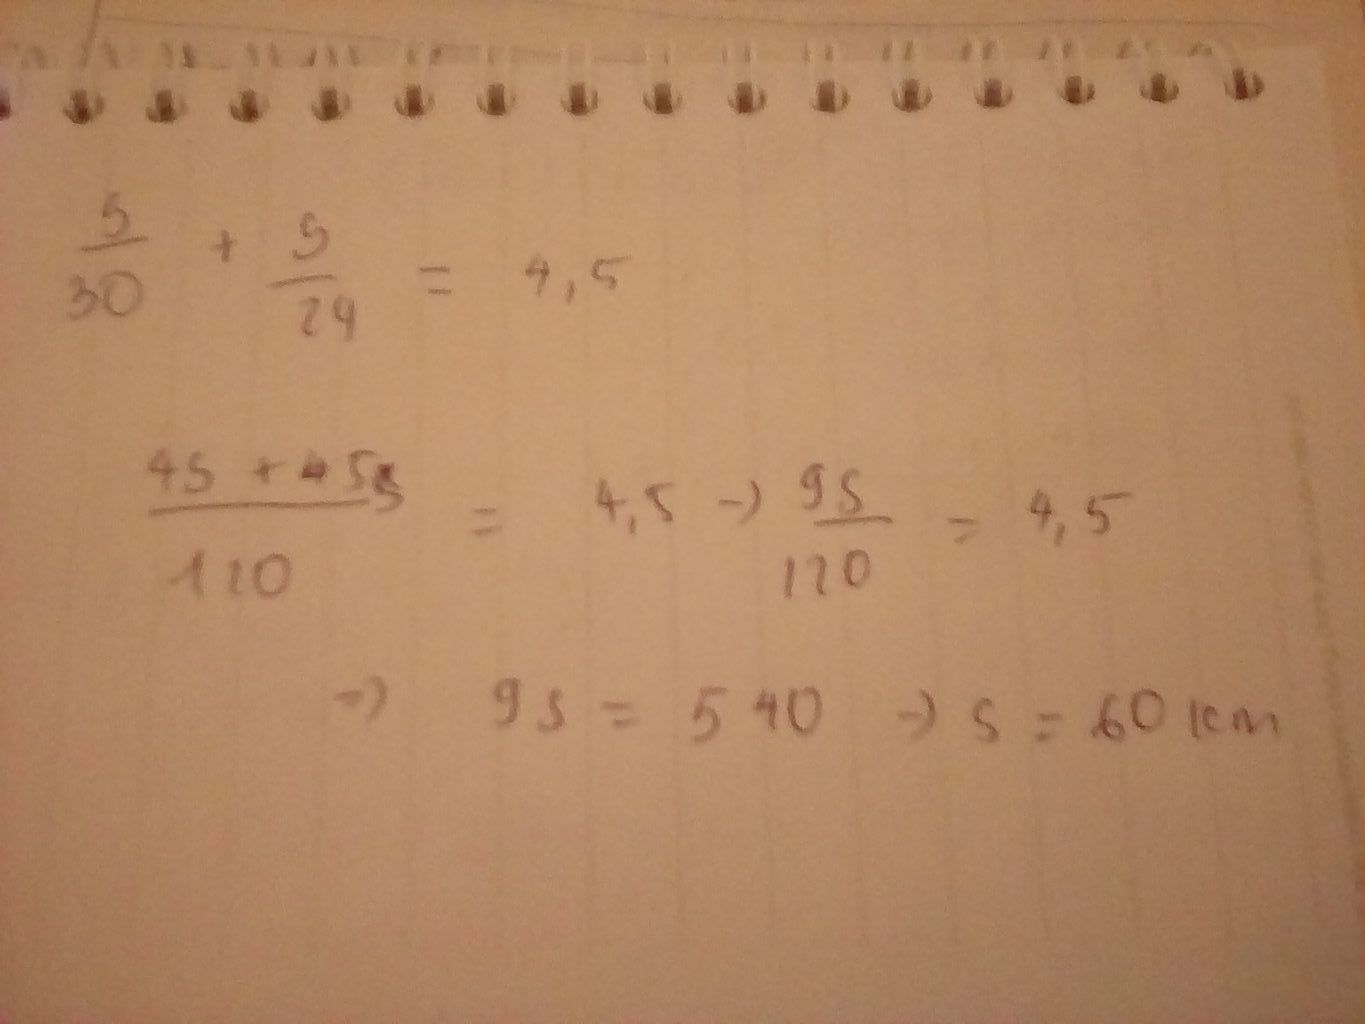 s/30 + s/24 = 4,5
4s + 5s/120 = 4,5 → 9s/120 = 4,5
→ 9s = 540 → s = 60 km